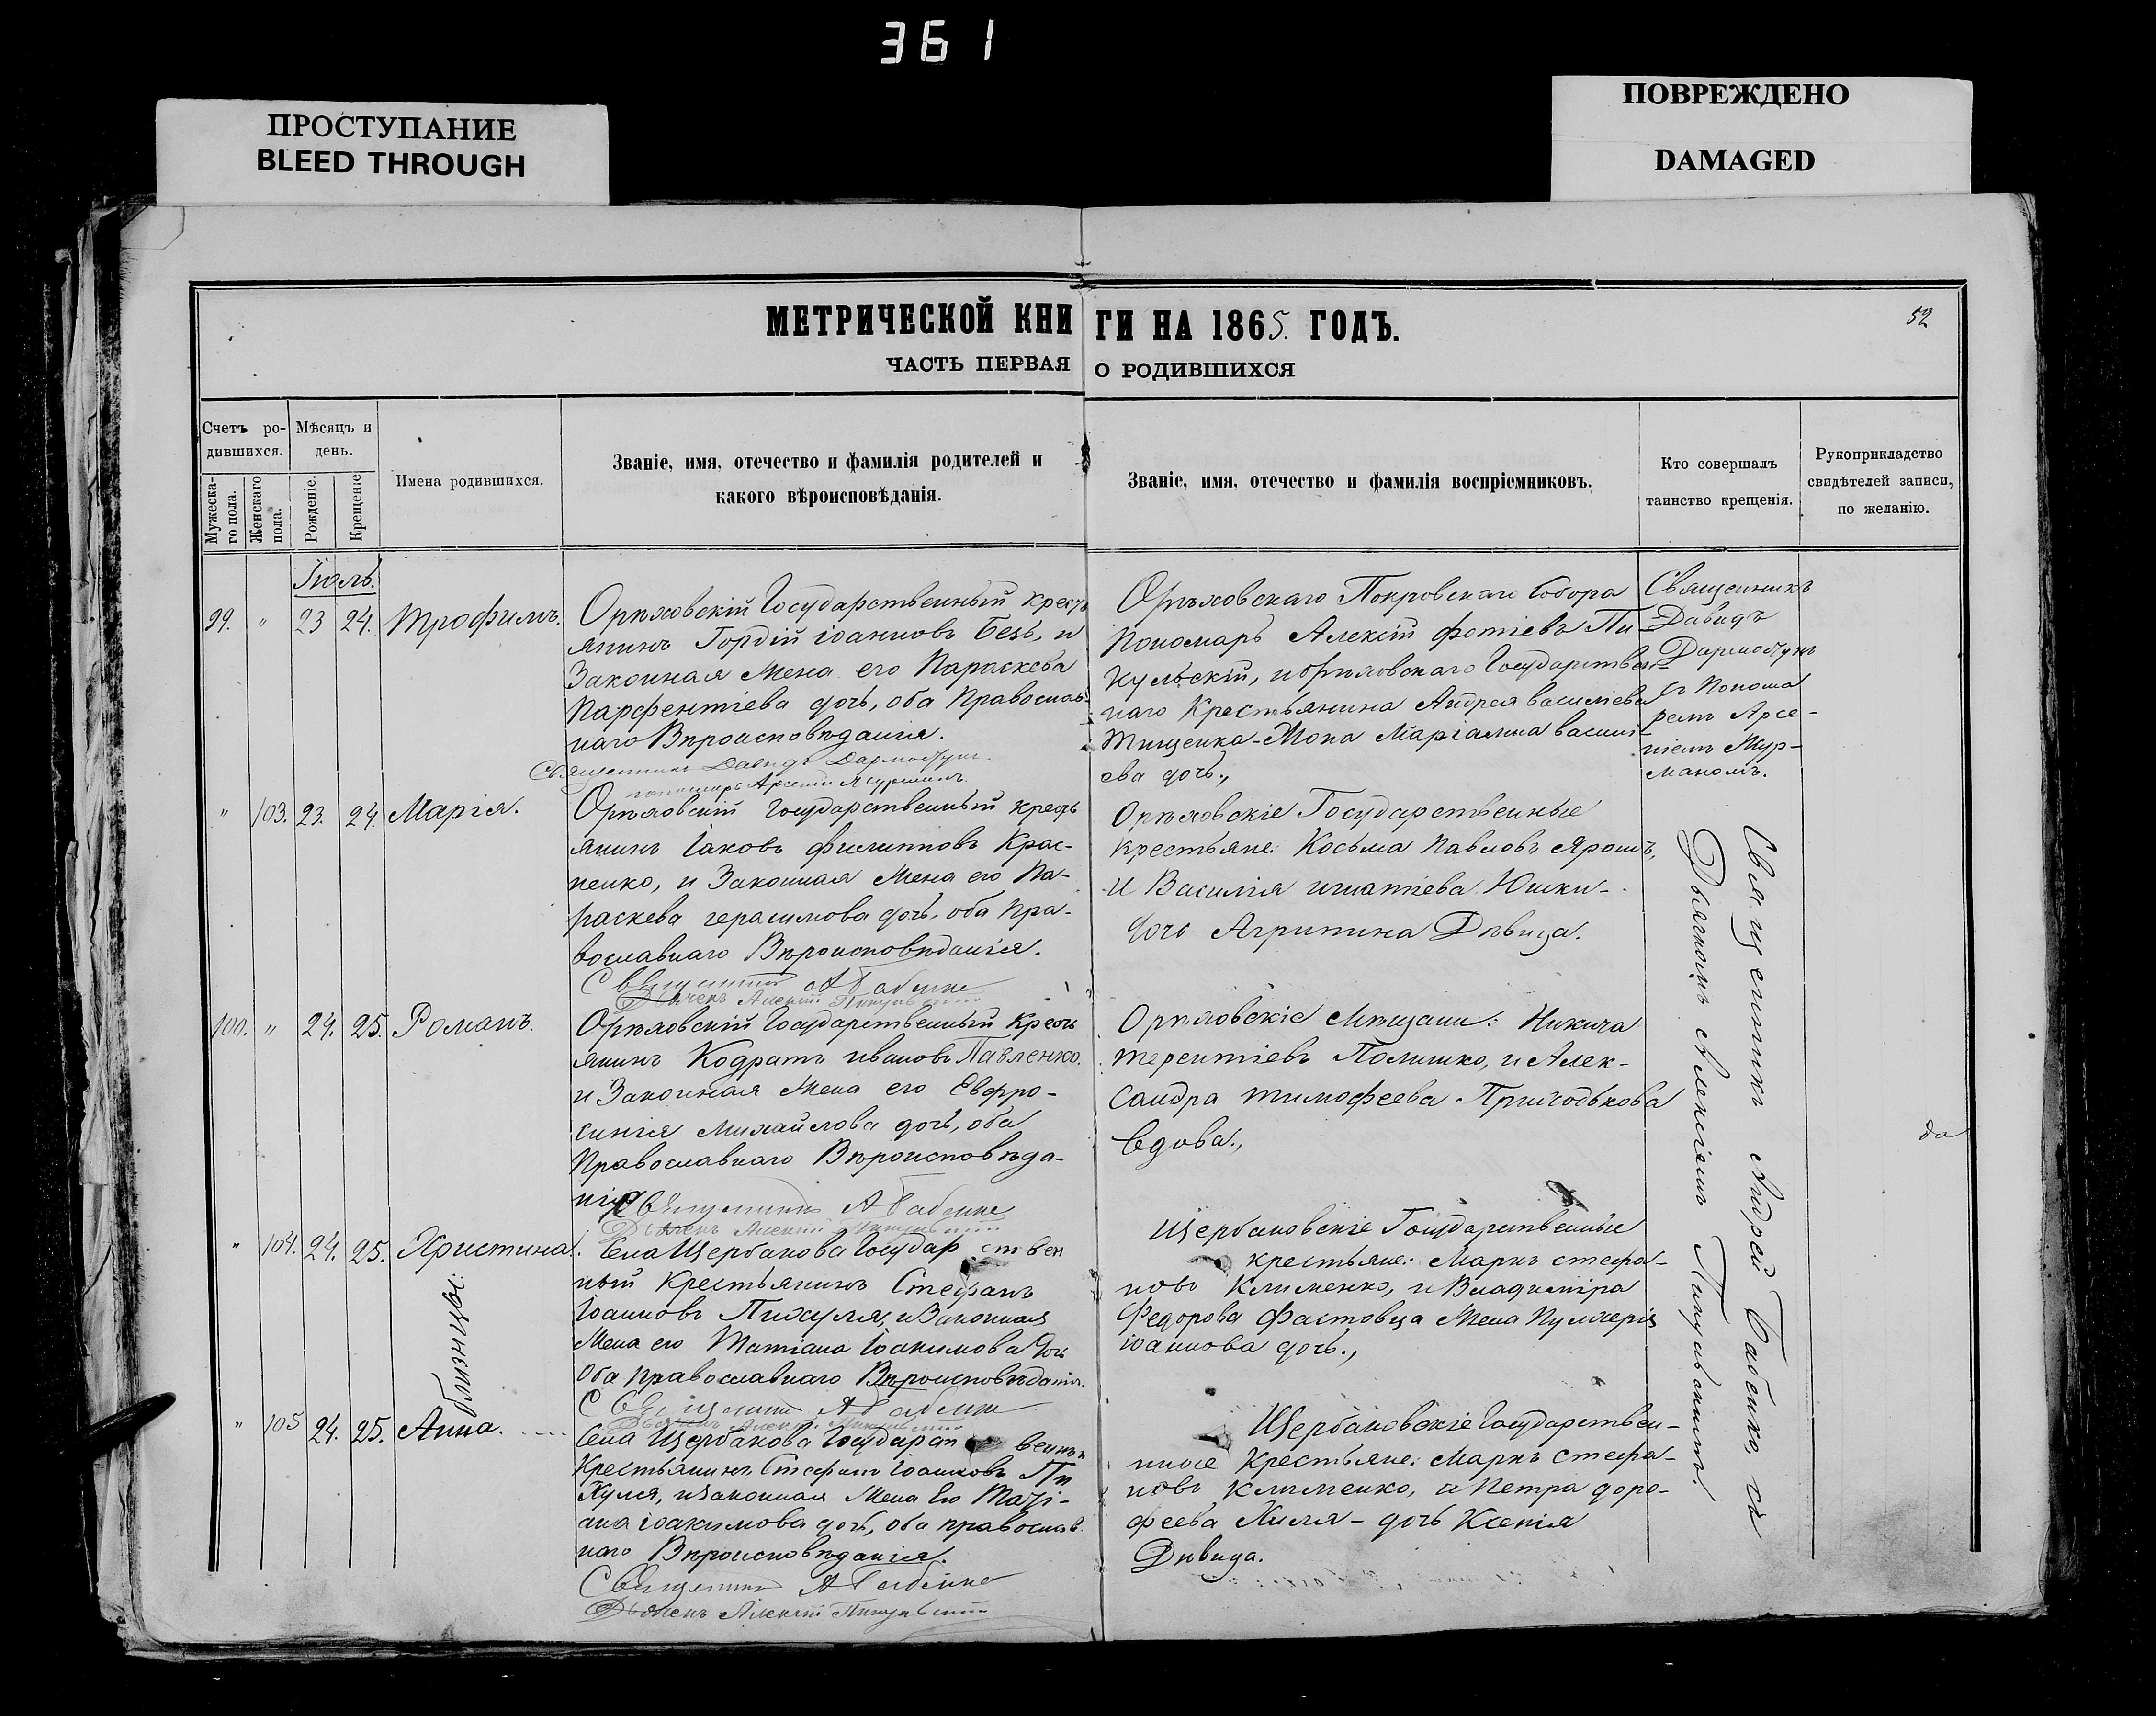 361
ПРОСТУПАНИЕ
BLEED THROUGH
ПОВРЕЖДЕНО
DAMAGED
МЕТРИЧЕСКОЙ КНИГИ НА 1865. ГОДЪ.
52
ЧАСТЬ ПЕРВАЯ О РОДИВШИХСЯ
Счетъ ро-
дившихся.
Мужеска-
го пола.
Женскаго
пола.
Мѣсяцъ и
день.
Рожденіе.
Крещеніе
Имена родившихся.
Званіе, имя, отечество и фамилія родителей и
какого вѣроисповѣданія.
Званіе, имя, отечество и фамилія воспріемниковъ.
Кто совершалъ
таинство крещенія.
Рукоприкладство
свидѣтелей записи,
по желанію.
Іюль.
99. " 23 24. Трофимъ.
Орѣховскій Государственный крест
янинъ Гордій Іоанновъ Безъ, и
Законная Жена его Параскева
Парфентіева дочь, оба Православ-
наго Вѣроисповѣданія.
Священникъ Давидъ
пономарь Арсеній
Орѣховскаго Покровскаго Собора
Пономарь Алексій Фотіевъ Пи
кульскій, и Орѣховскаго Государствен-
наго Крестьянина Андрея Василіева
Тищенка-Жена Маріамна Васил-
ева дочь.,
Священникъ
Давидъ
съ Понома
ремъ Арсе-
ніемъ
" 103. 23. 24. Марія.
Орѣховскій Государственный крест
янинъ Іаковъ Филипповъ Крас-
ненко, и Законная Жена его Па-
раскева Герасимова дочь, оба Пра-
вославнаго Вѣроисповѣданія.
Священникъ А Бабенко
Дьячекъ Алексій Пикульскій
Орѣховскіе Государственные
Крестьяне: Косьма Павловъ Ярошъ,
и Василія Игнатіева Юшки-
дочь Агрипина Дѣвица.
Священникъ Андрей Бабенко, съ
Дьячкомъ Алексіемъ Пикульскимъ.
100. " 24. 25. Романъ.
Орѣховскій Государственный Крест
янинъ Кодратъ Ивановъ Павленко.
и Законная Жена его Евфро-
синія Михайлова дочь, оба
Православнаго Вѣроисповѣда-
нія
Священникъ А Бабенко
Дьячекъ Алексій Пикульскій
Орѣховскіе Мѣщани: Никита
Терентіевъ Полишко, и Алек-
сандра Тимофеева Пригодькова
Вдова.,
да
" 104. 24. 25. Христина.
близницы
Села Щербакова Государ ствен
ный Крестьянинъ Стефанъ
Іоанновъ Пихуля, и Законная
Жена его Татіана Іоакимова дочь
Оба Православнаго Вѣроисповѣданія.
Священникъ А Бабенко
Дьячекъ Алексій Пикульскій
Щербаковскіе Государственные
крестьяне: Маркъ Стефа-
новъ Клименко, и Владиміра
Федорова Фастовца Жена Пулхерія
Іоаннова дочь.,
" 105 24. 25. Анна.
Села Щербакова Государст венный
Крестьянинъ Стефанъ Іоанновъ Пи
хуля, и Законная Жена Его Таті-
ана Іоакимова дочь, оба православ
наго Вѣроисповѣданія.
Священникъ А Бабенко
Дьячекъ Алексій Пикульскій
Щербаковскіе Государствен-
ные Крестьяне: Маркъ Стефа-
новъ Клименко, и Петра Доро-
феева Хиля - дочь Ксенія
Дѣвица.